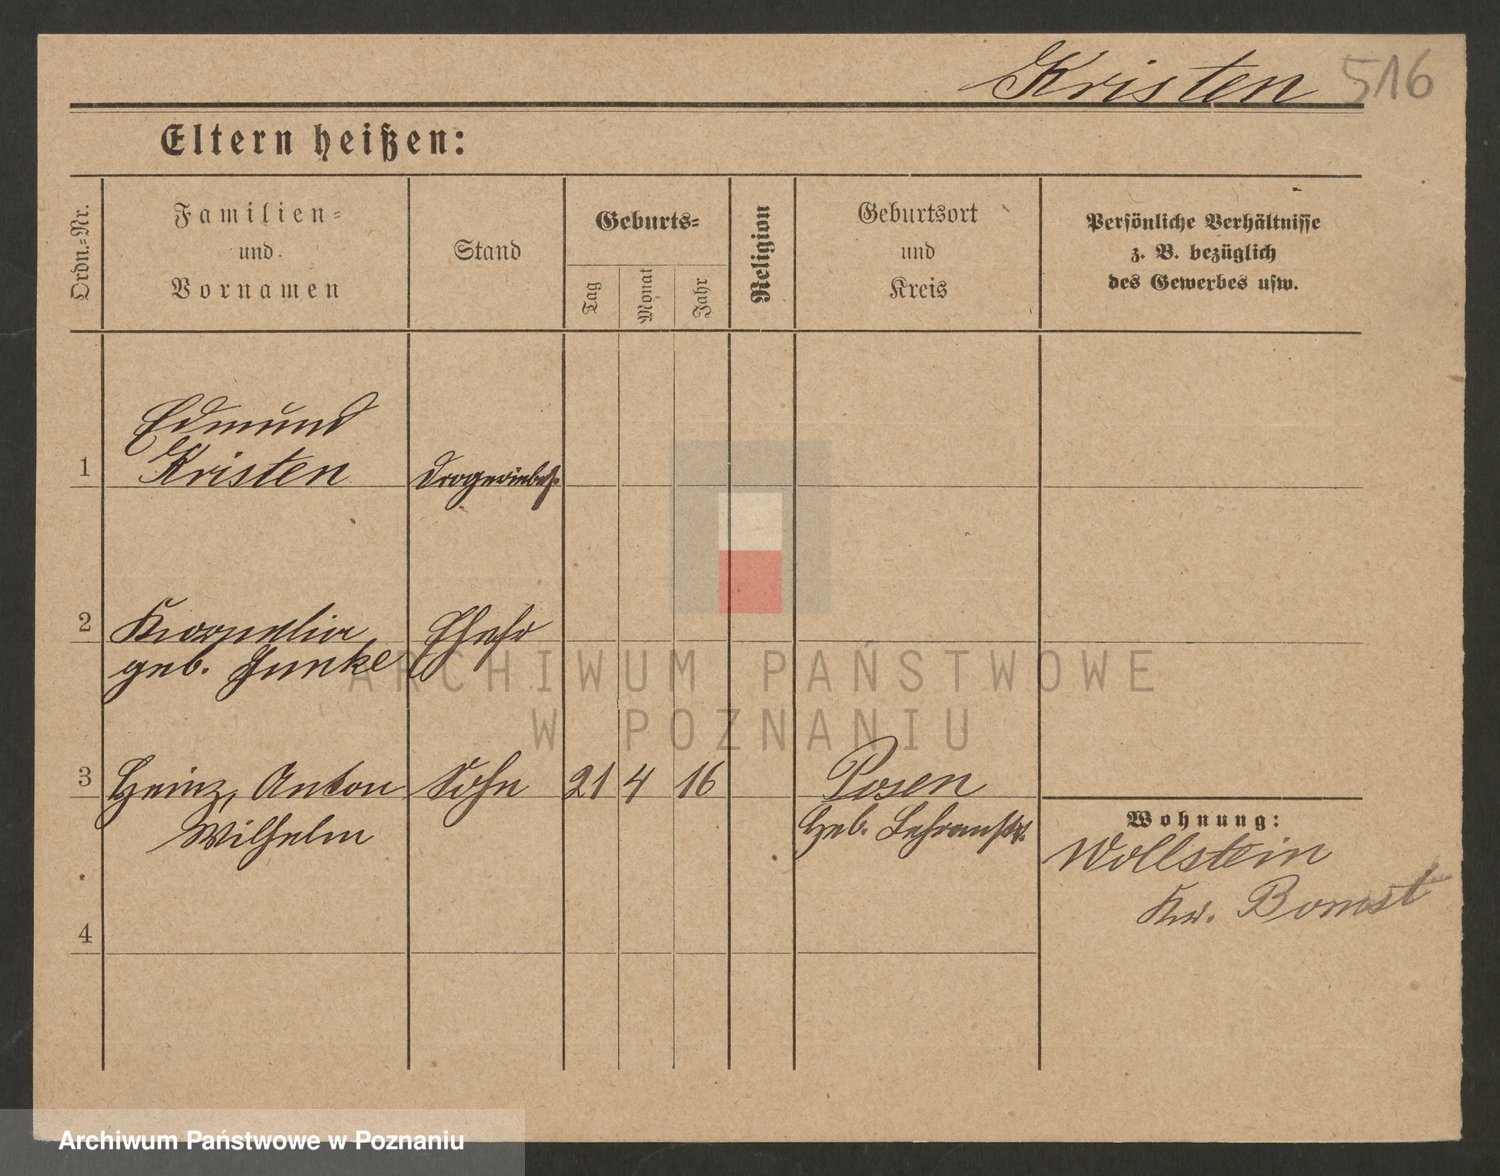 Kristen 516
Eltern heißen:
Ordn.-Nr.
Familien-
und
Vornamen
Stand
Geburts-
Tag
Monat
Jahr
Religion
Geburtsort
und
Kreis
Persönliche Verhältnisse
z. B. bezüglich
des Gewerbes usw.
1
Edmund
Kristen
Drogeriebes.
2
Kornelia
geb. Junke
Ehefr
3
Heinz, Anton
Wilhelm
Sohn
21 4 16
Posen
Heb. Lehranst.
Wohnung:
Wollstein
Kr. Bomst
4
ARCHIWUM PAŃSTWOWE
W POZNANIU
Archiwum Państwowe w Poznaniu